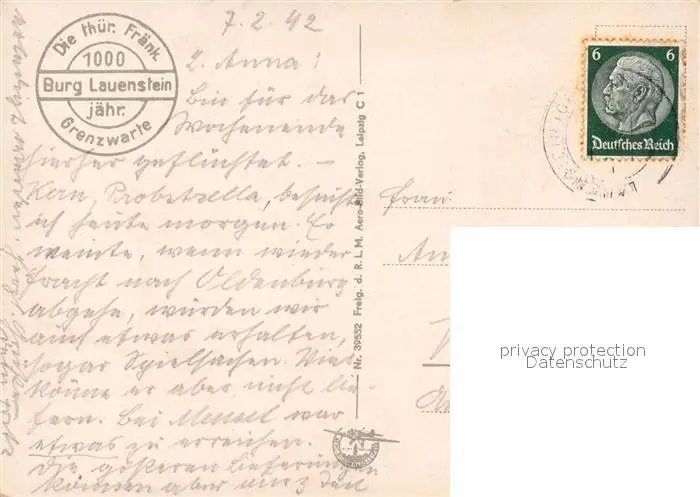 7.2.42
Die thür. Fränk.
1000
Burg Lauenstein
jähr.
Grenzwarte
L. Anna!
Bin für das
Wochenende
hierher geflüchtet. –
Kern, Probstzella, besuchte
ich heute morgen. Er
meinte, wenn wieder
Fracht nach Oldenburg
abgehe, würden wir
auch etwas erhalten,
sogar Spielsachen. Viel
könne er aber nicht lie-
fern. Bei Mensel war
etwas zu erreichen.
Die größeren Lieferungen
können aber zur Zeit
Nr. 39552 Freig. d. R. L. M. Aero-Bild-Verlag, Leipzig C 1
6 6
Deutsches Reich
Frau
privacy protection
Datenschutz